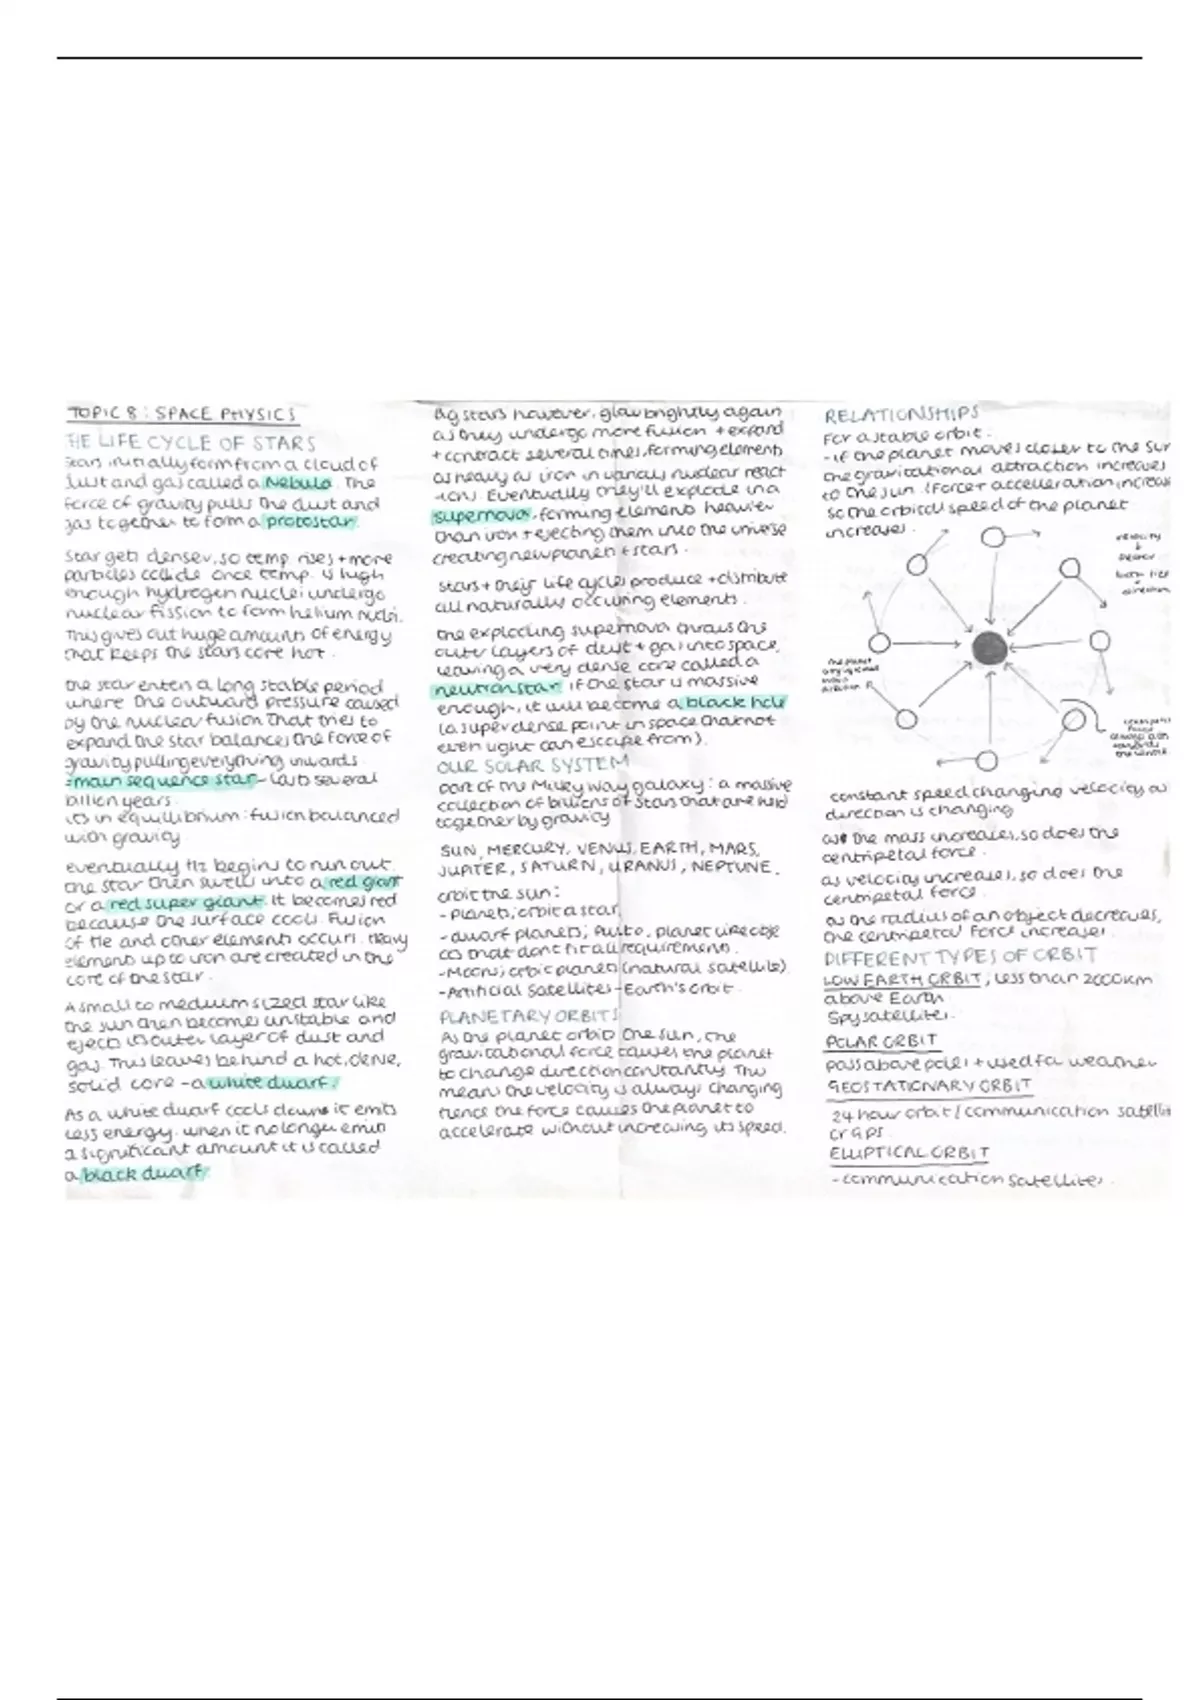 TOPIC 8: SPACE PHYSICS
THE LIFE CYCLE OF STARS
Stars initially form from a cloud of
dust and gas called a Nebula. The
force of gravity pulls the dust and
gas together to form a protostar.
Star gets denser, so temp rises + more
particles collide once temp. is high
enough hydrogen nuclei undergo
nuclear fission to form helium nuclei.
This gives out huge amounts of energy
that keeps the stars core hot.
the star enters a long stable period
where the outward pressure caused
by the nuclear fusion that tries to
expand the star balances the force of
gravity pulling everything inwards.
= main sequence star - lasts several
billion years.
its in equilibrium: fusion balanced
with gravity
eventually H2 begins to run out,
the star then swells into a red giant
or a red super giant. It becomes red
because the surface cools. Fusion
of He and other elements occurs. Heavy
elements up to iron are created in the
core of the star.
A small to medium sized star like
the sun then becomes unstable and
ejects its outer layer of dust and
gas. This leaves behind a hot, dense,
solid core - a white dwarf.
As a white dwarf cools down it emits
less energy. when it no longer emits
a significant amount it is called
a black dwarf.
Big stars however, glow brightly again
as they undergo more fusion + expand
+ contract several times, forming elements
as heavy as iron in various nuclear react
-ions. Eventually they'll explode in a
supernova, forming elements heavier
than iron + ejecting them into the universe
creating new planets + stars.
stars + their life cycles produce + distribute
all naturally occuring elements.
the exploding supernova throws the
outer layers of dust + gas into space,
leaving a very dense core called a
neutron star. if the star is massive
enough, it will become a black hole
(a super dense point in space that not
even light can escape from).
OUR SOLAR SYSTEM
part of the Milky way galaxy: a massive
collection of billions of stars that are held
together by gravity
SUN, MERCURY, VENUS, EARTH, MARS,
JUPITER, SATURN, URANUS, NEPTUNE.
orbit the sun:
- Planets; orbit a star,
- dwarf planets; Pluto, planet like obje
cts that dont fit all requirements.
- Moons; orbit planets (natural satellite)
- Artificial Satellites - Earth's orbit.
PLANETARY ORBITS
As the planet orbits the sun, the
gravitational force causes the planet
to change direction constantly. This
means the velocity is always changing
hence the force causes the planet to
accelerate without increasing its speed.
RELATIONSHIPS
For a stable orbit.
- if the planet moves closer to the Sun
the gravitational attraction increases
to the sun. (Force + acceleration increase
so the orbital speed of the planet
increases.
velocity
constant speed changing velocity as
direction is changing
as the mass increases, so does the
centripetal force.
as velocity increases, so does the
centripetal force.
as the radius of an object decreases,
the centripetal force increases.
DIFFERENT TYPES OF ORBIT
LOW EARTH ORBIT; less than 2000km
above Earth
Spy satellites.
POLAR ORBIT
pass above poles + used for weather
GEOSTATIONARY ORBIT
24 hour orbit / communication satellit
or GPS.
ELLIPTICAL ORBIT
- communication satellites.